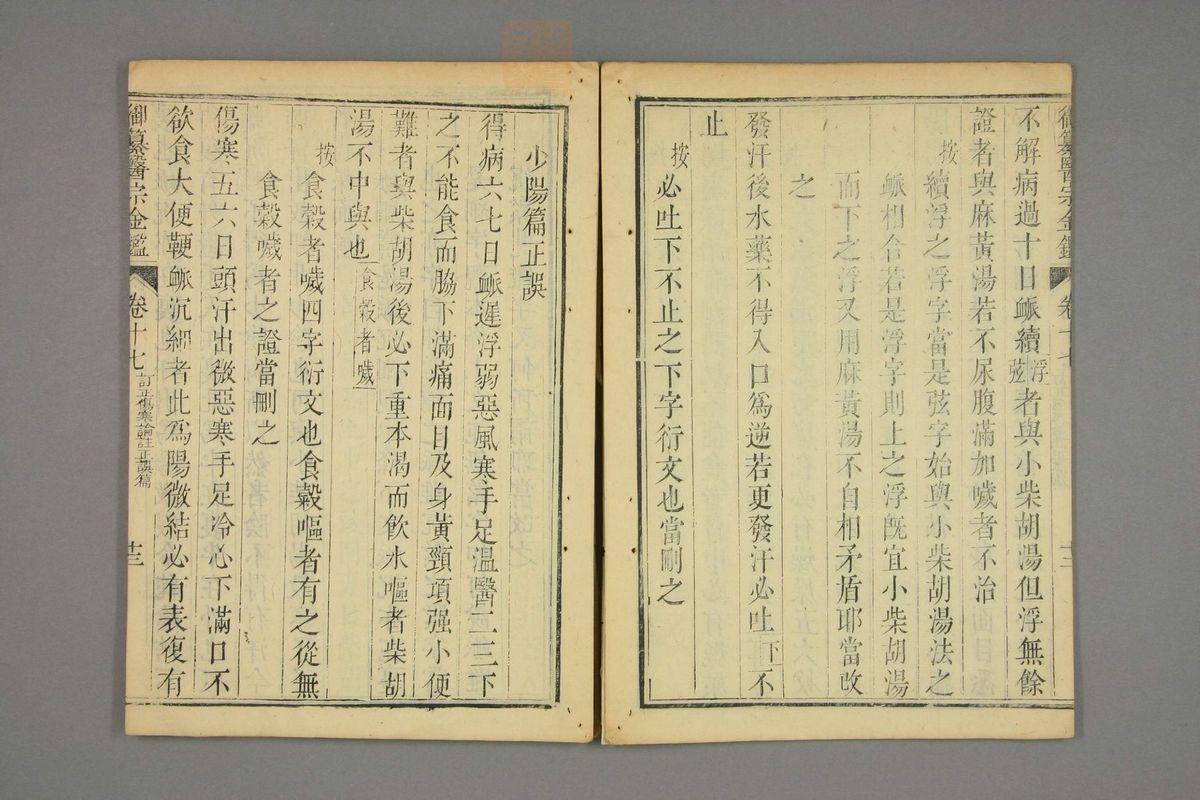 御纂醫宗金鑑
卷十七
十三
不解病過十日䘑續浮弦者與小柴胡湯但浮無餘
證者與麻黃湯若不尿腹滿加噦者不治
按續浮之浮字當是弦字始與小柴胡湯法之
䘑相合若是浮字則上之浮旣宜小柴胡湯
而下之浮又用麻黃湯不自相矛盾耶當改
之
發汗後水藥不得入口爲逆若更發汗必吐下不
止
按必吐下不止之下字衍文也當刪之
少陽篇正誤
得病六七日䘑遲浮弱惡風寒手足溫醫二三下
之不能食而脇下滿痛面目及身黃頸項强小便
難者與柴胡湯後必下重本渴而飲水嘔者柴胡
湯不中與也食穀者噦
按食穀者噦四字衍文也食穀嘔者有之從無
食穀噦者之證當刪之
傷寒五六日頭汗出微惡寒手足冷心下滿口不
欲食大便鞕䘑沉細者此爲陽微結必有表復有
御纂醫宗金鑑
卷十七
訂正傷寒論註正誤篇
十三